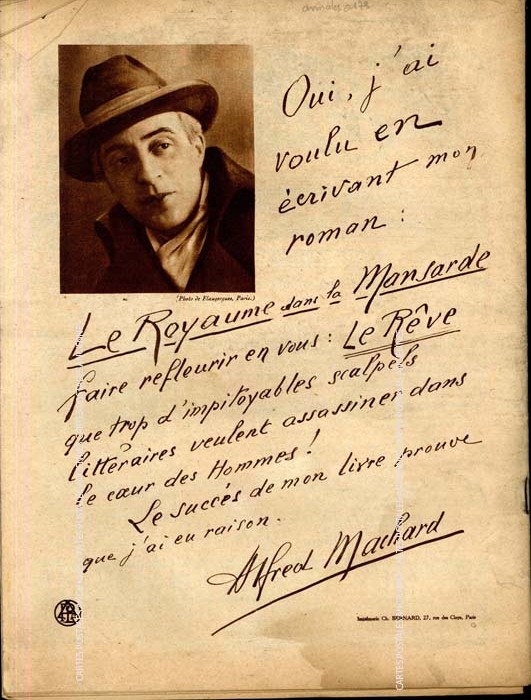 Oui, j'ai
voulu en
écrivant mon
roman :
(Photo de Flaugergues, Paris.)
Le Royaume dans la Mansarde
faire refleurir en vous : Le Rêve
que trop d'impitoyables scalpels
littéraires veulent assassiner dans
le cœur des Hommes !
Le succès de mon livre prouve
que j'ai eu raison.
Alfred Machard
Imprimerie Ch. BERNARD, 27, rue des Cloys, Paris